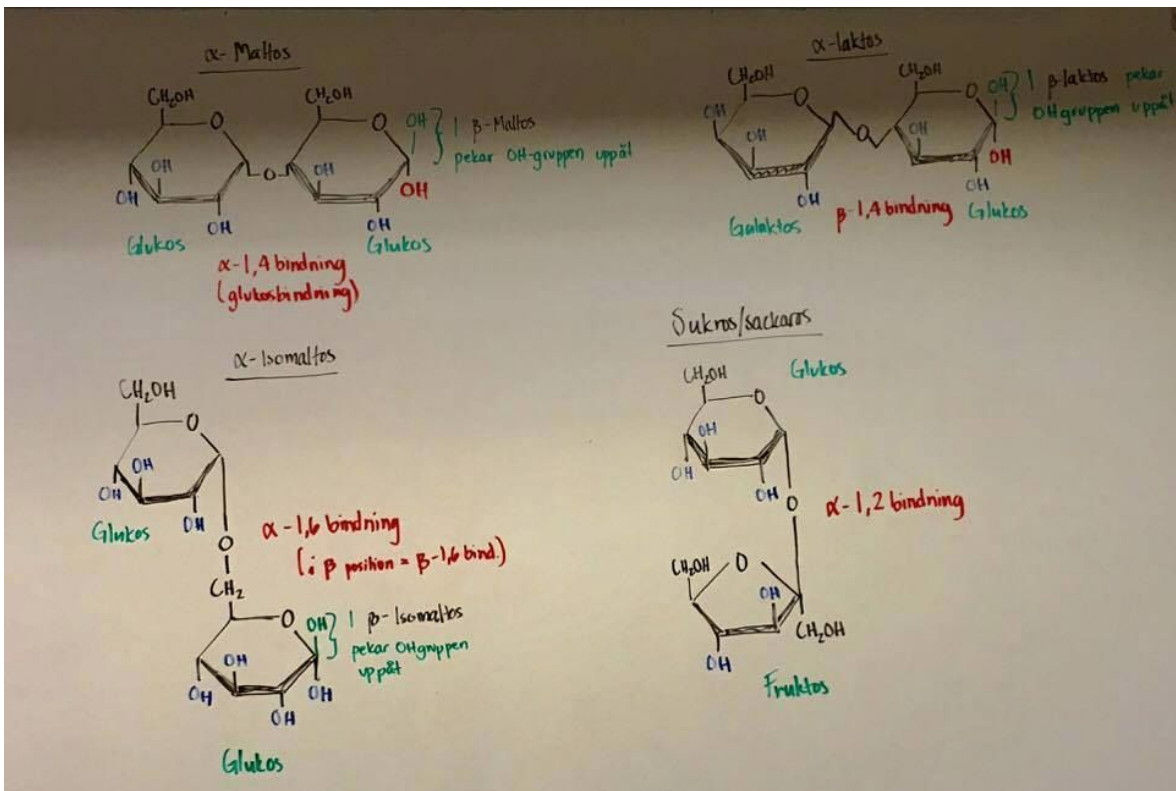 α-Maltos
CH₂OH
CH₂OH
O
O
OH
} I β-Maltos
pekar OH-gruppen uppåt
OH
OH
O
OH
OH
OH
OH
Glukos
Glukos
α-1,4 bindning
(glukosbindning)
α-laktos
CH₂OH
CH₂OH
O
O
OH
} I β-laktos pekar
OHgruppen uppåt
OH
OH
O
OH
OH
OH
OH
Galaktos
β-1,4 bindning
Glukos
α-Isomaltos
CH₂OH
O
OH
OH
OH
Glukos
O
α-1,6 bindning
(i β position = β-1,6 bind.)
CH₂
O
OH
} I β-Isomaltos
pekar OHgruppen
uppåt
OH
OH
OH
OH
Glukos
Sukros/sackaros
CH₂OH
Glukos
O
OH
OH
OH
O
α-1,2 bindning
CH₂OH
O
OH
CH₂OH
OH
Fruktos